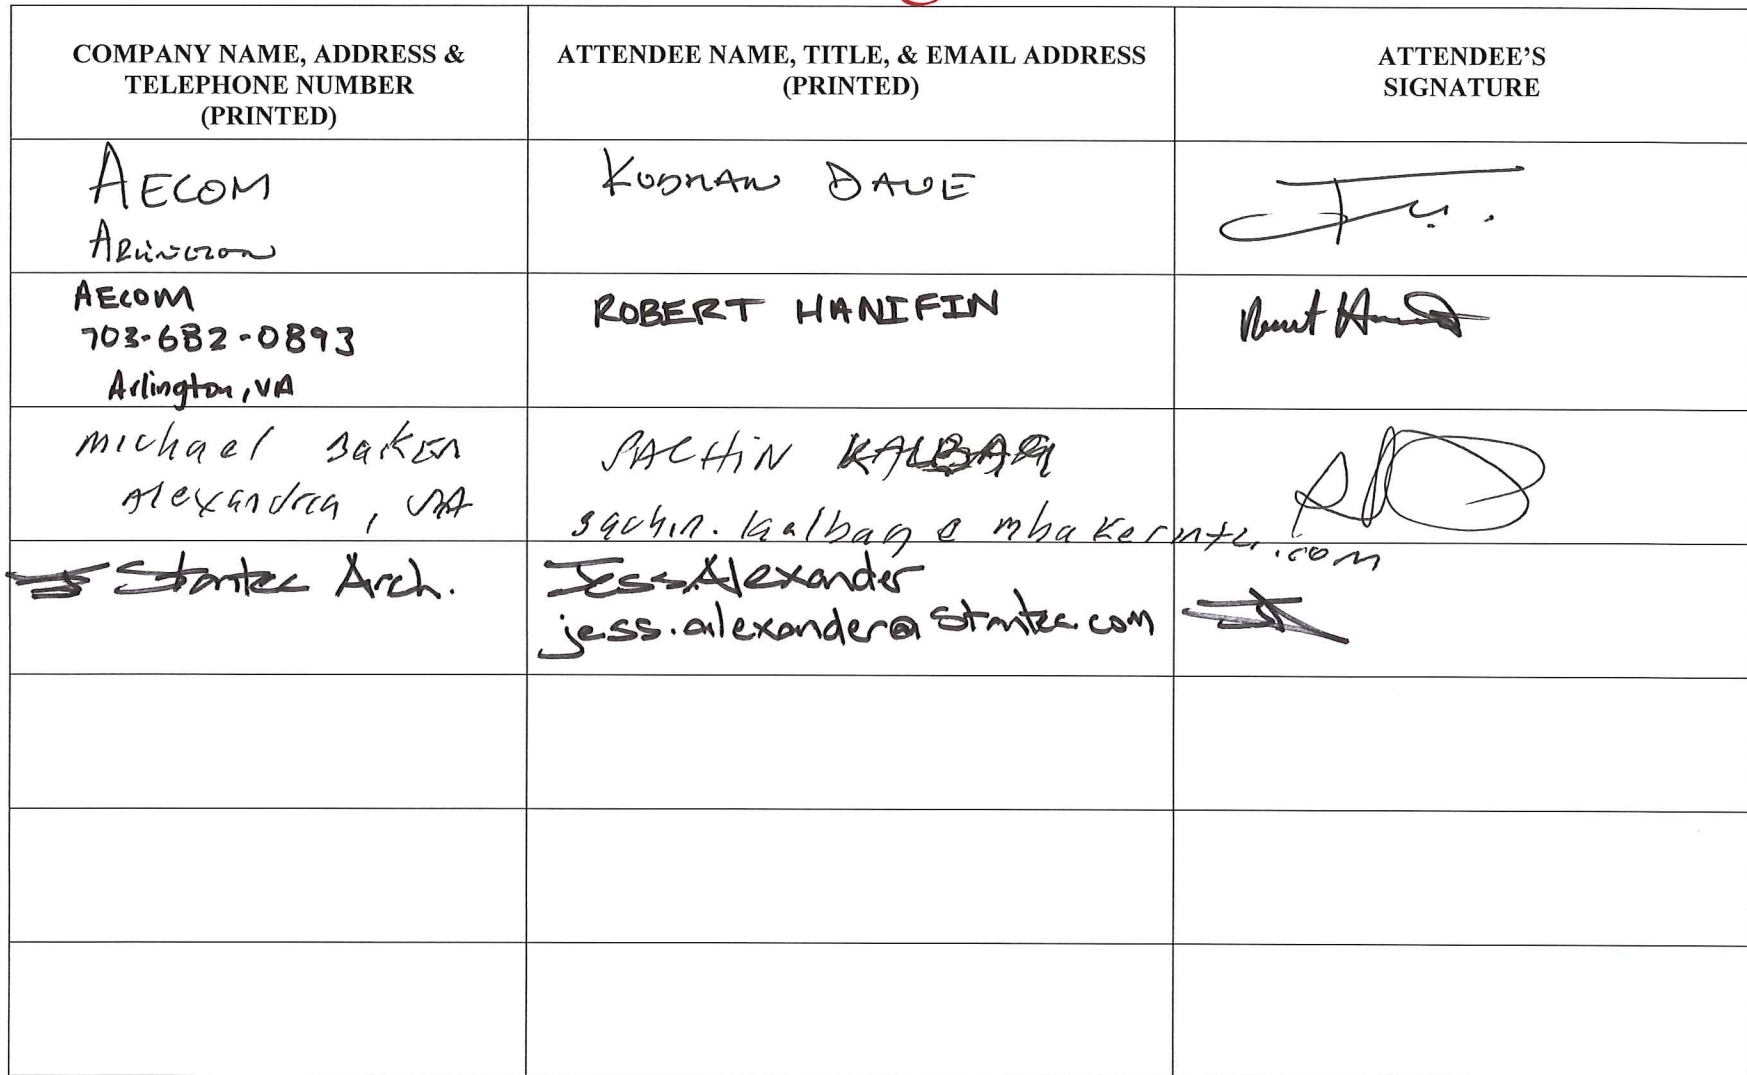 COMPANY NAME, ADDRESS &
TELEPHONE NUMBER
(PRINTED)
ATTENDEE NAME, TITLE, & EMAIL ADDRESS
(PRINTED)
ATTENDEE'S
SIGNATURE
AECOM
ARLINGTON
DAVE
AECOM
703-682-0893
Arlington, VA
ROBERT HANIFIN
Michael Baker
Alexandria, VA
SACHIN KALBAG
sachin.kalbag@mbakerintl.com
Stantec Arch.
Jess Alexander
jess.alexander@stantec.com